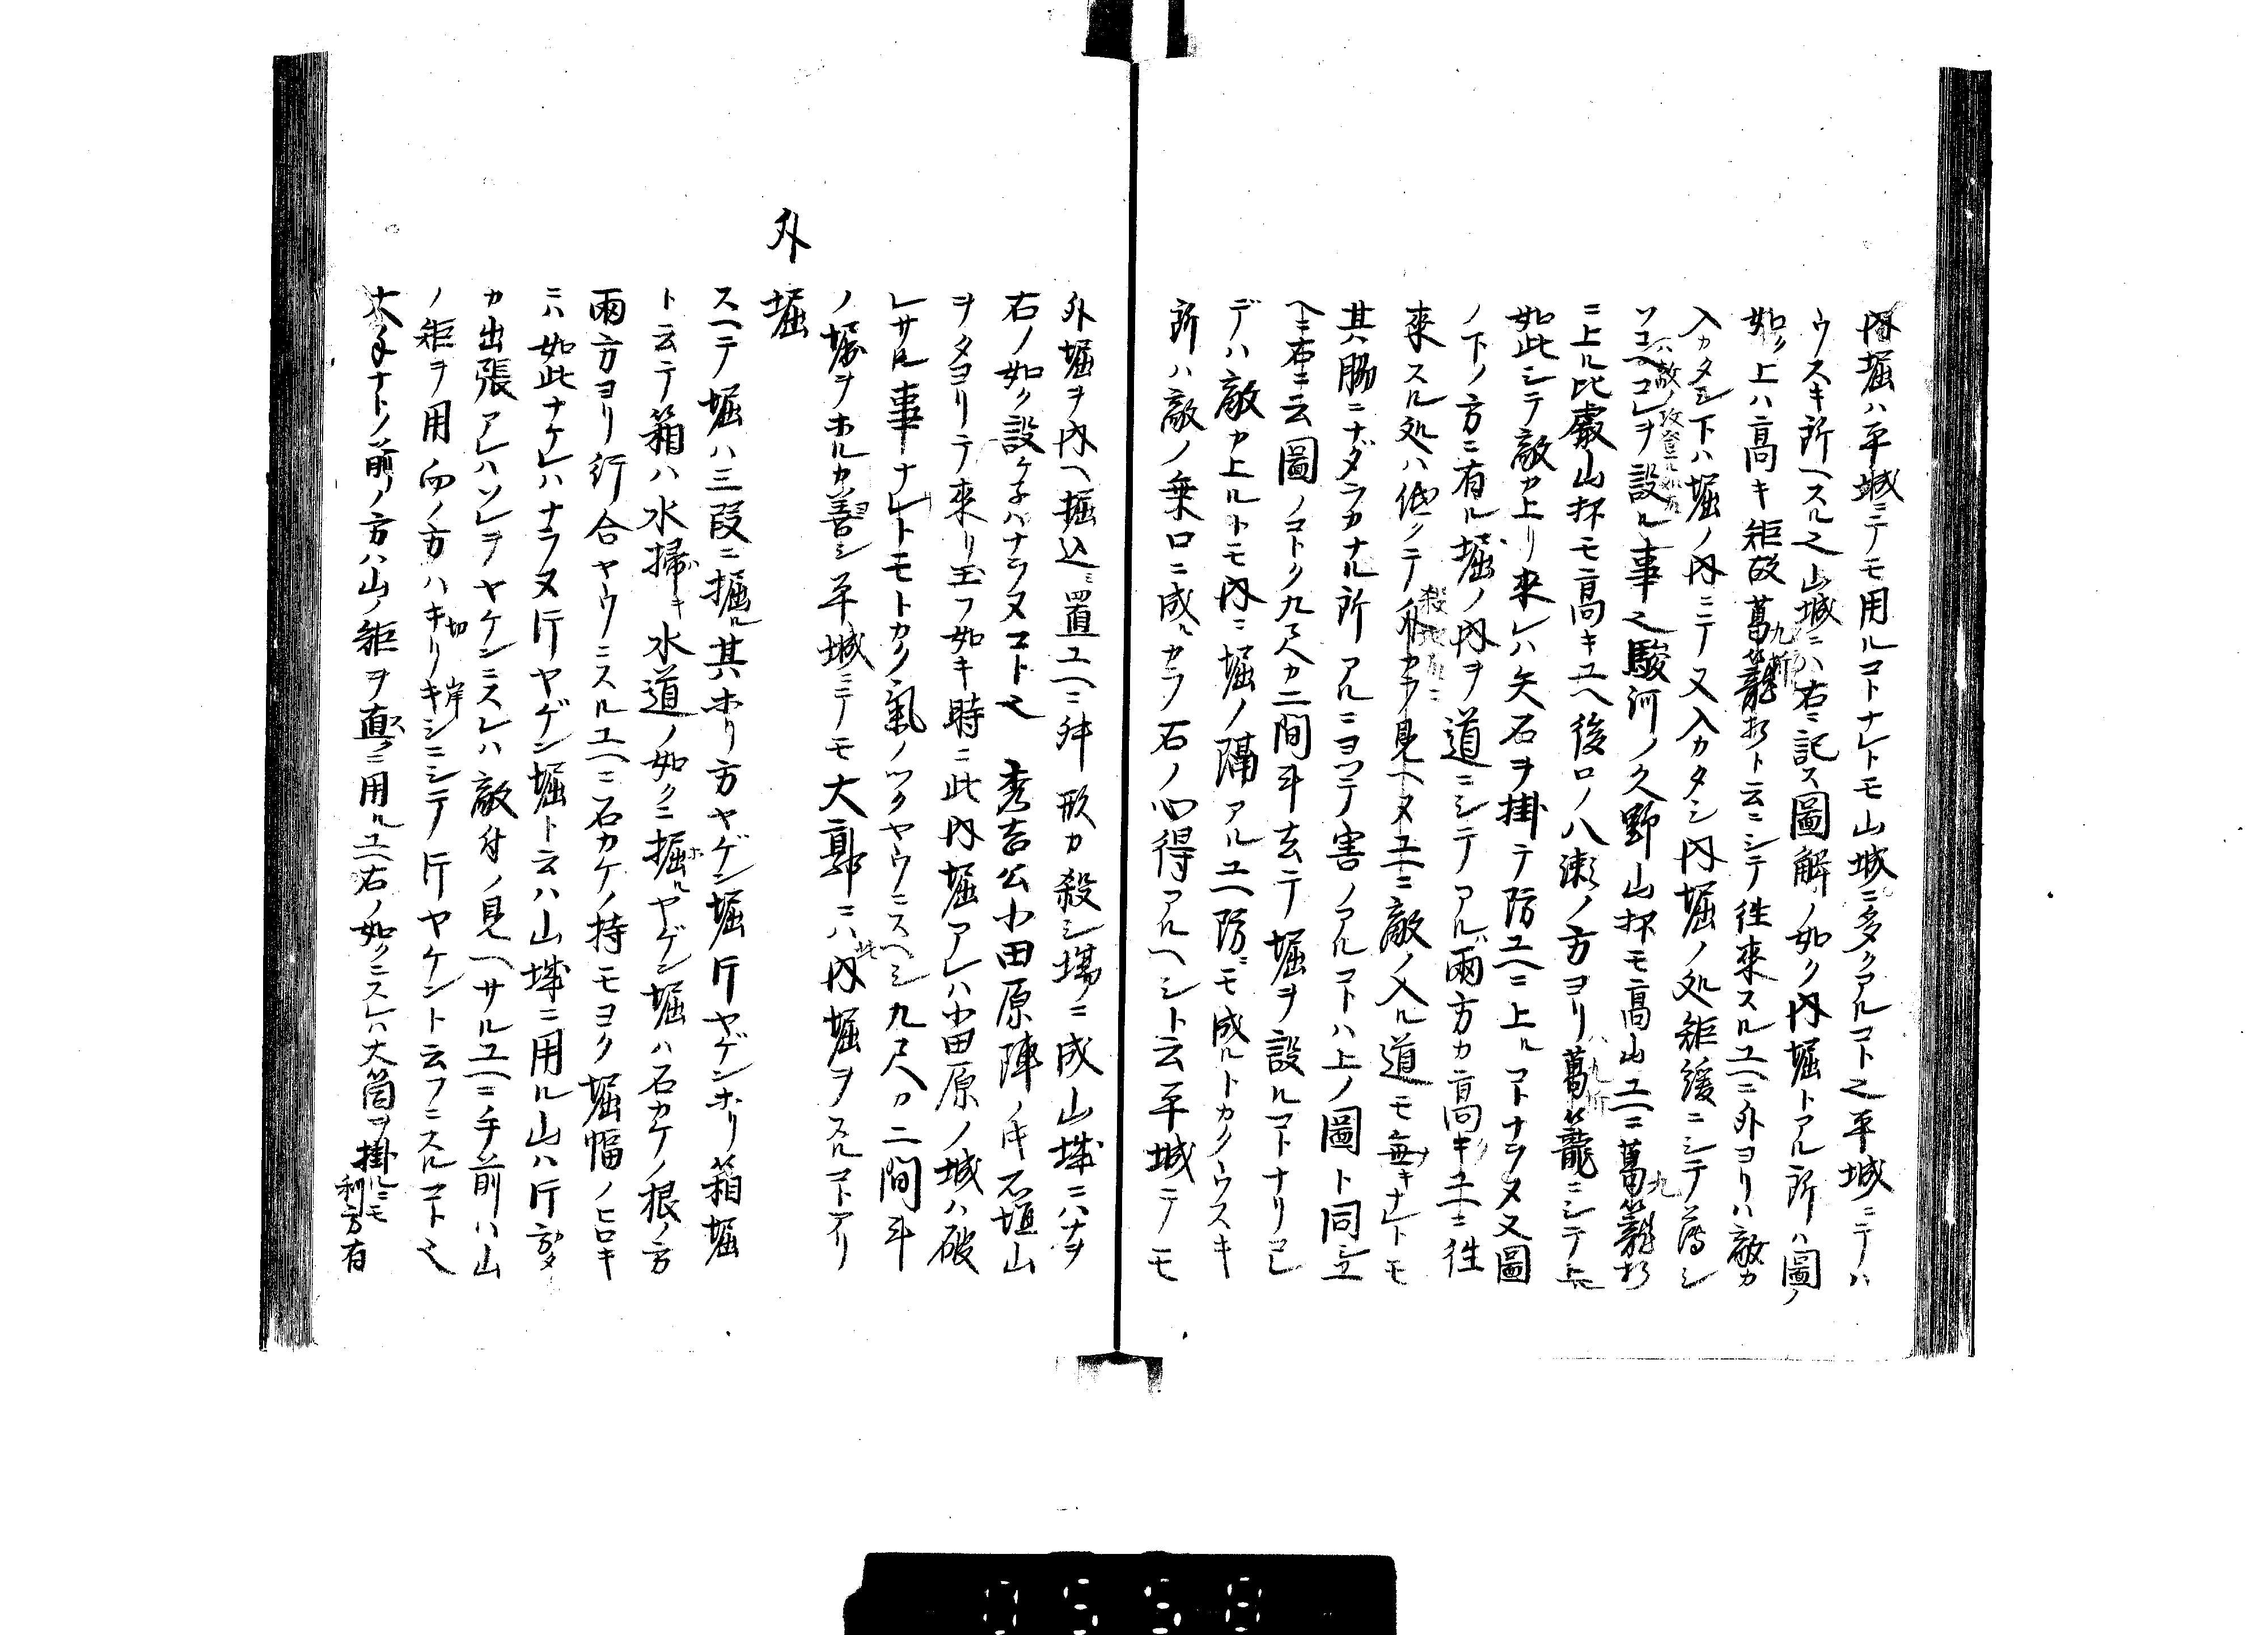 内堀ハ平城ニテモ用ルコトナレトモ山城ニ多クアルコト也平城ニテハ
ウスキ所ヘスル也山城ニハ右ニ記ス圖解ノ如ク内堀トアル所ハ圖ノ
如ク上ハ高キ矩故葛籠折ト云ニシテ徃來スルユヘニ外ヨリハ敵カ
入カタシ下ハ堀ノ内ニテ又入カタシ内堀ノ処矩緩ニシテ薄シ
ソコヘコレヲ設ル事也駿河ノ久野山抔モ高山ユヘニ葛籠折
ニ上ル比叡山抔モ高キユヘ後ロノ八瀬ノ方ヨリハ葛籠ニシテ上ル
如此シテ敵カ上リ来レハ矢石ヲ掛テ防ユヘニ上ルコトナラヌ又圖
ノ下ノ方ニ有ル堀ノ内ヲ道ニシテアル両方カ高キユヘニ徃
來スル処ハ低クテ外カラ見ヘヌユヘニ敵ノ入ル道モ無キナレトモ
其脇ニナダラカナル所アルニヨツテ害ノアルコトハ上ノ圖ト同シユ
ヘニ右ニ云圖ノコトク九尺カ二間斗去テ堀ヲ設ルコトナリコレ
デハ敵カ上ルトモ内ニ堀ノ隔アルユヘ防ニモ成ルトカクウスキ
所ハ敵ノ乗口ニ成ルカラ右ノ心得アルヘシト云平城ニテモ
外堀ヲ内ヘ掘込ニ置ユヘニ舛形カ殺シ場ニ成山城ニハナヲ
右ノ如ク設ケ子ハナラヌコト也 秀吉公小田原陣ノ時石垣山
ヲタヨリテ來リ玉フ如キ時ニ此内堀アレハ小田原ノ城ハ破
レサル事ナレトモトカク氣ノツクヤウニスヘシ九尺カ二間斗
ノ堀ヲホルカ善シ平城ニテモ大郭ニハ此内堀ヲスルコトアリ
外堀
スヘテ堀ハ三段ニ掘ル其ホリ方ヤゲン堀片ヤゲンホリ箱堀
ト云テ箱ハ水掃キ水道ノ如クニ掘ルヤゲン堀ハ石カケノ根ノ方
両方ヨリ行合ヤウニスルユヘニ石カケノ持モヨク堀幅ノヒロキ
ニハ如此ナケレハナラヌ片ヤゲン堀ト云ハ山城ニ用ル山ハ片方
カ出張アレハソレヲヤケンニスレハ敵付ノ見ヘサルユヘニ手前ハ山
ノ矩ヲ用向ノ方ハキリキシニシテ片ヤケント云フニスルコト也
大手ナトノ前ノ方ハ山ノ矩ヲ直クニ用ルユヘ右ノ如クニスレハ大筒ヲ掛ルニモ
利方有